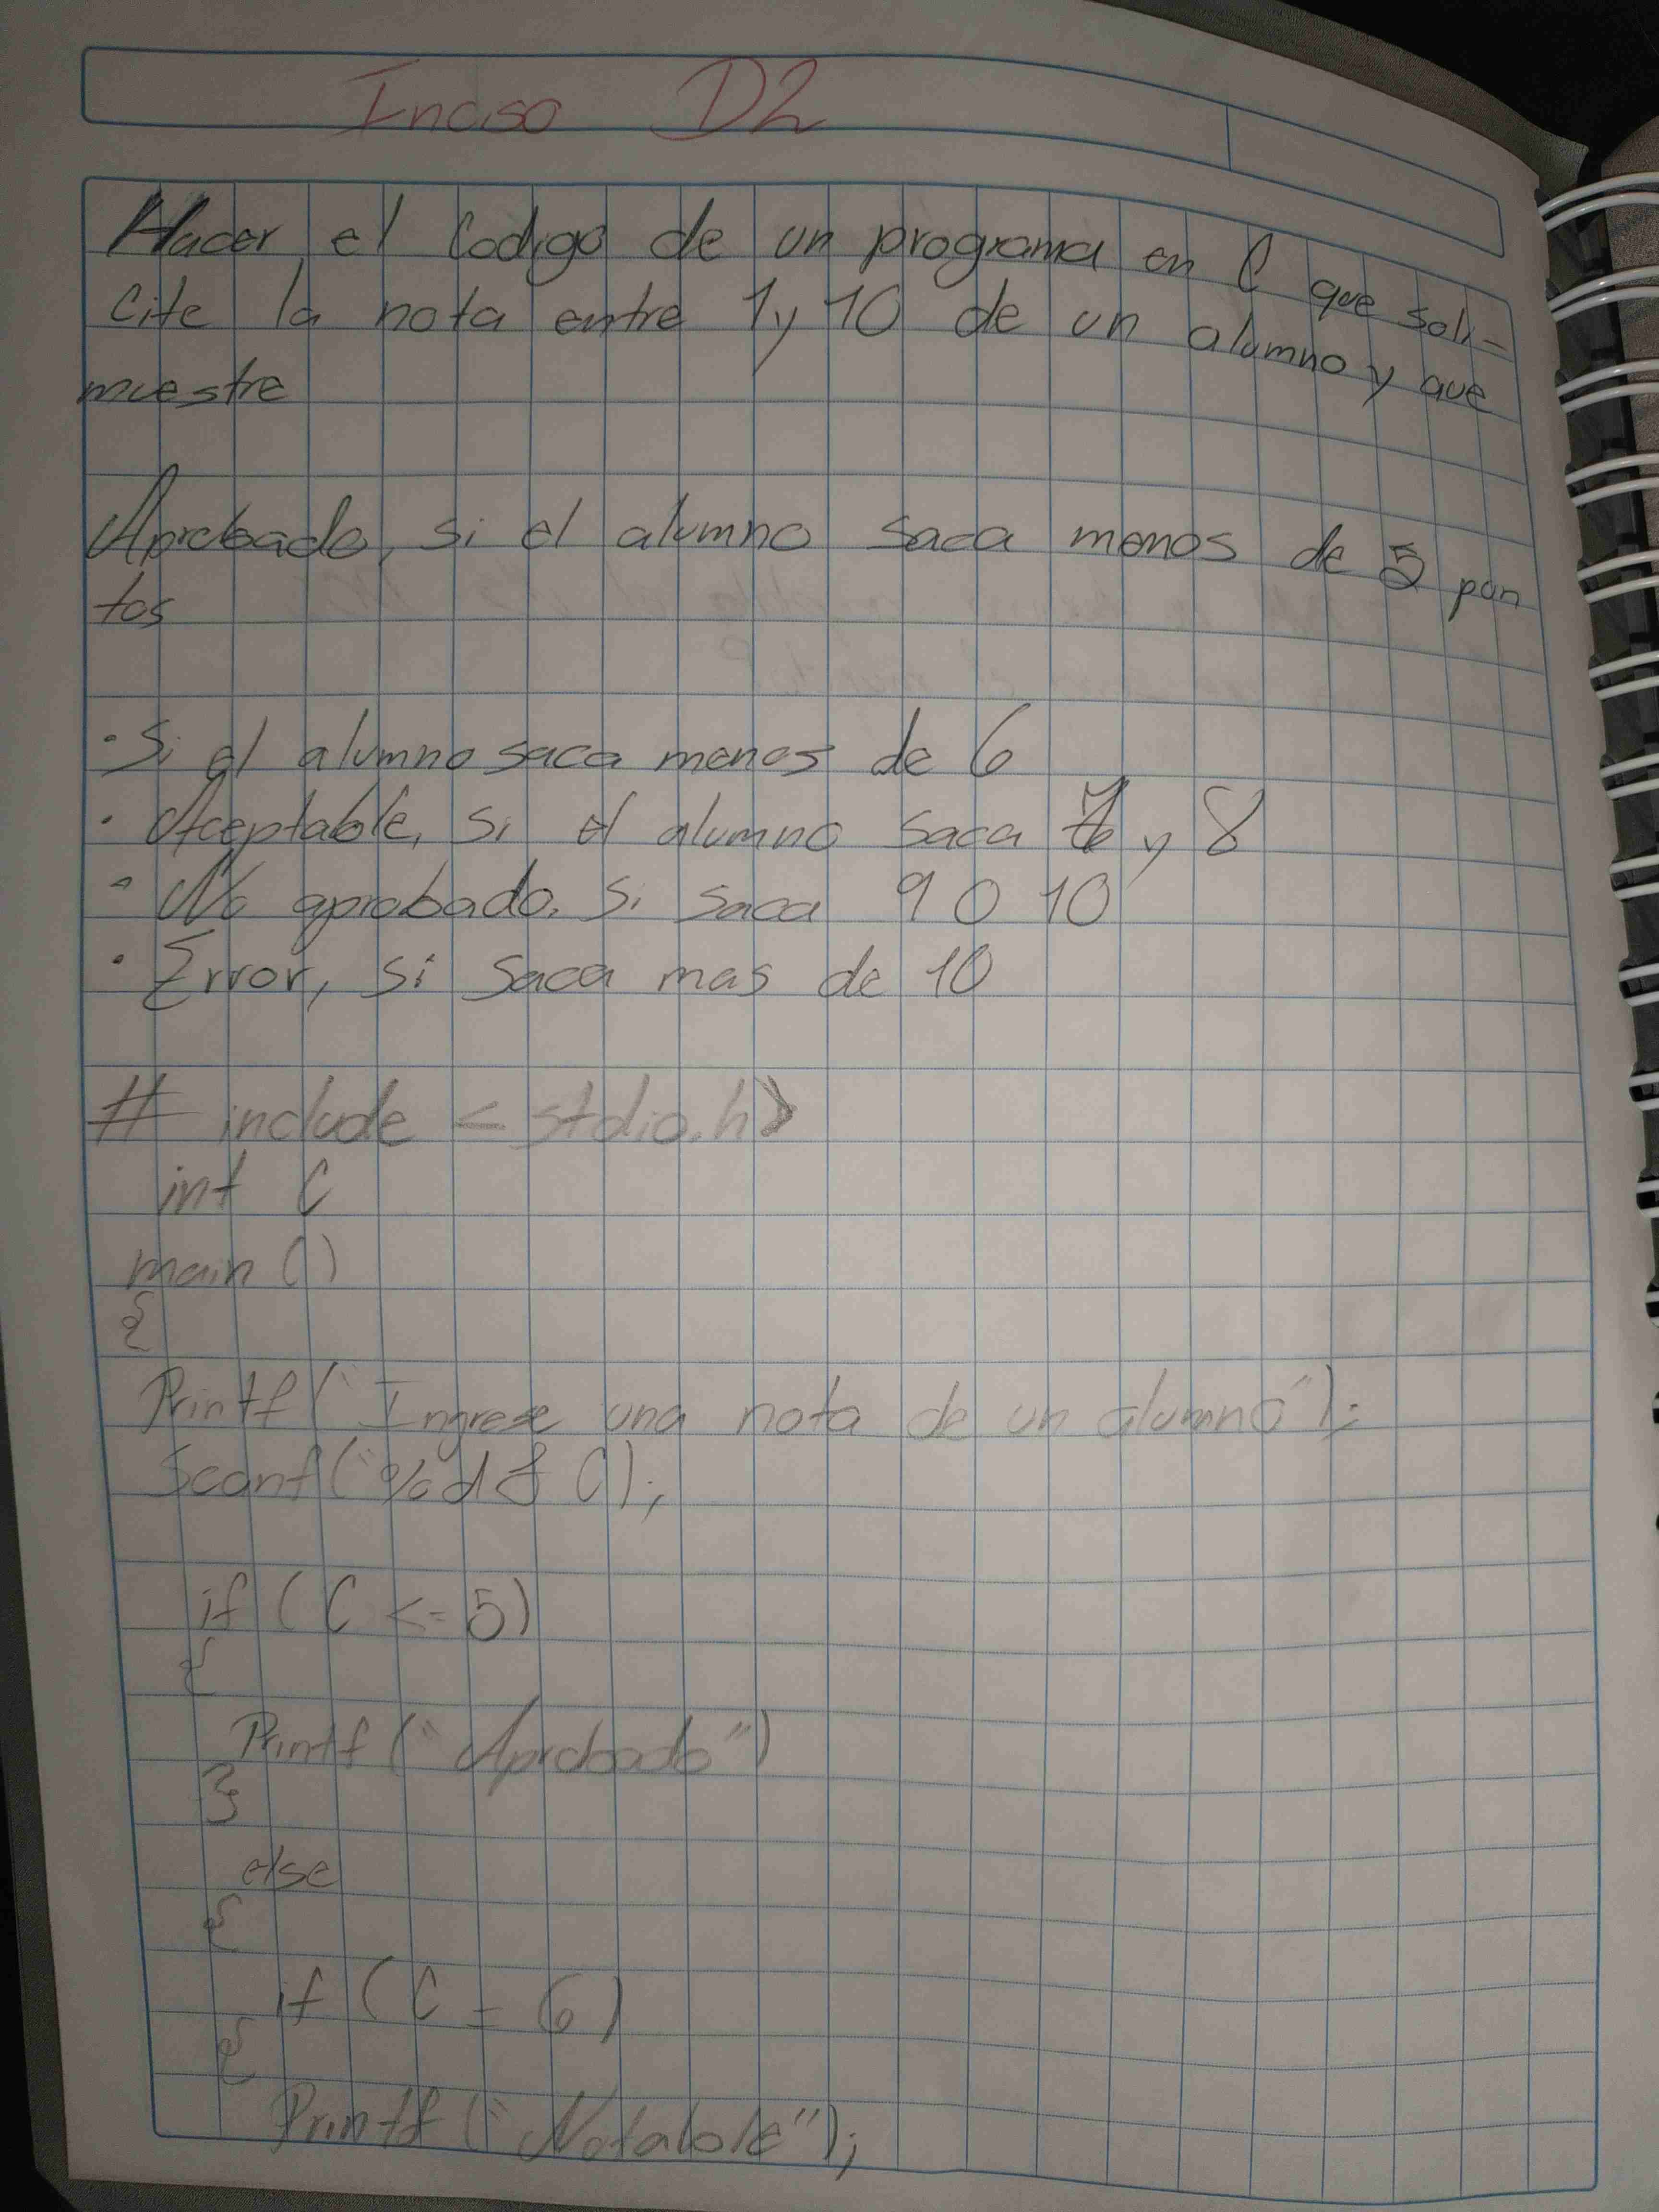 Inciso D2
Hacer el Codigo de un programa en C que soli-
cite la nota entre 1 y 10 de un alumno y que
muestre
Aprobado, si el alumno saca menos de 5 pun
tos
· Si el alumno saca menos de 6
· Aceptable, si el alumno saca 7 y 8
· No aprobado, si saca 9 o 10
· Error, si saca mas de 10
# include <stdio.h>
int C
main ()
{
Printf ("Ingrese una nota de un alumno");
Scanf ("%d & C);
if (C <= 5)
{
Printf ("Aprobado")
}
else
{
if (C = 6)
{
Printf ("Notable");